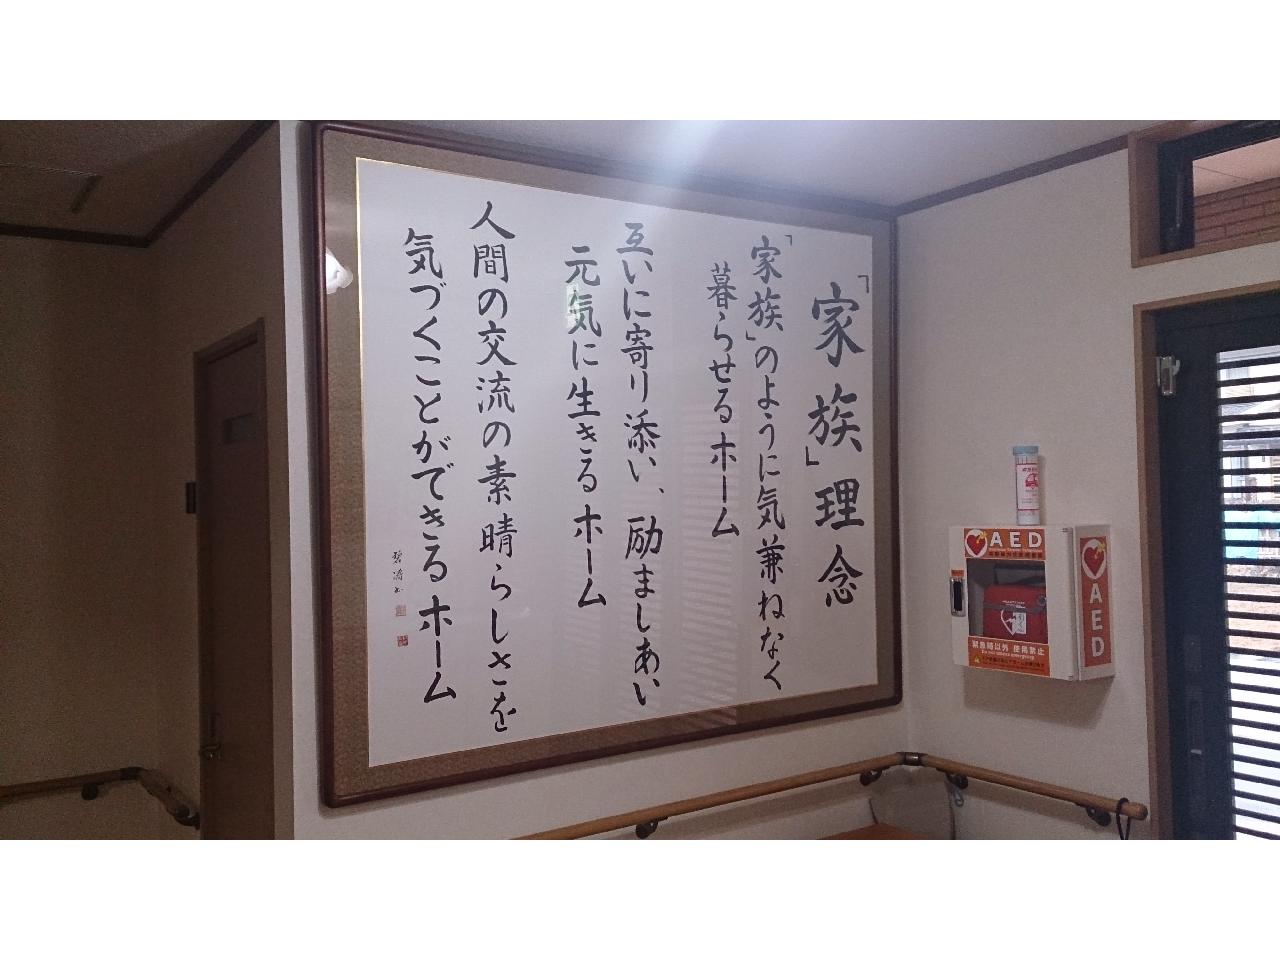 「家族」理念
「家族」のように気兼ねなく
暮らせるホーム
互いに寄り添い、励ましあい
元気に生きるホーム
人間の交流の素晴らしさを
気づくことができるホーム
AED
緊急時以外 使用禁止
AED